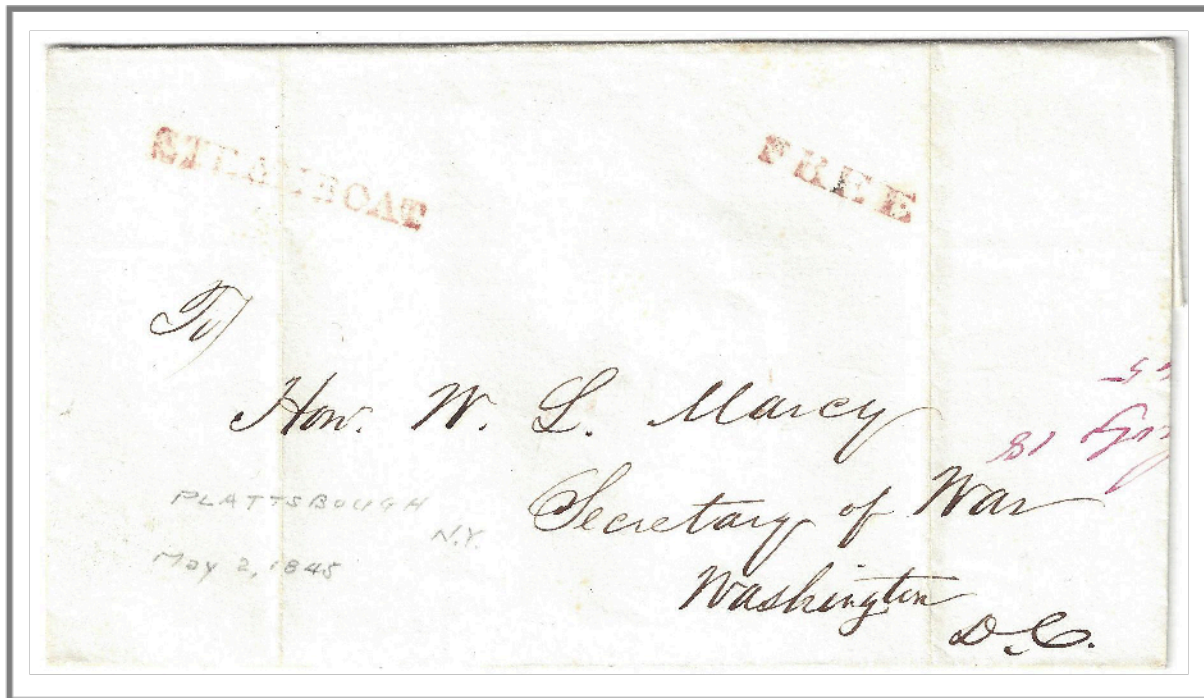 STEAMBOAT
FREE
To
Hon. W. L. Marcy
Secretary of War
Washington
D.C.
PLATTSBOUGH
N.Y.
May 2, 1845